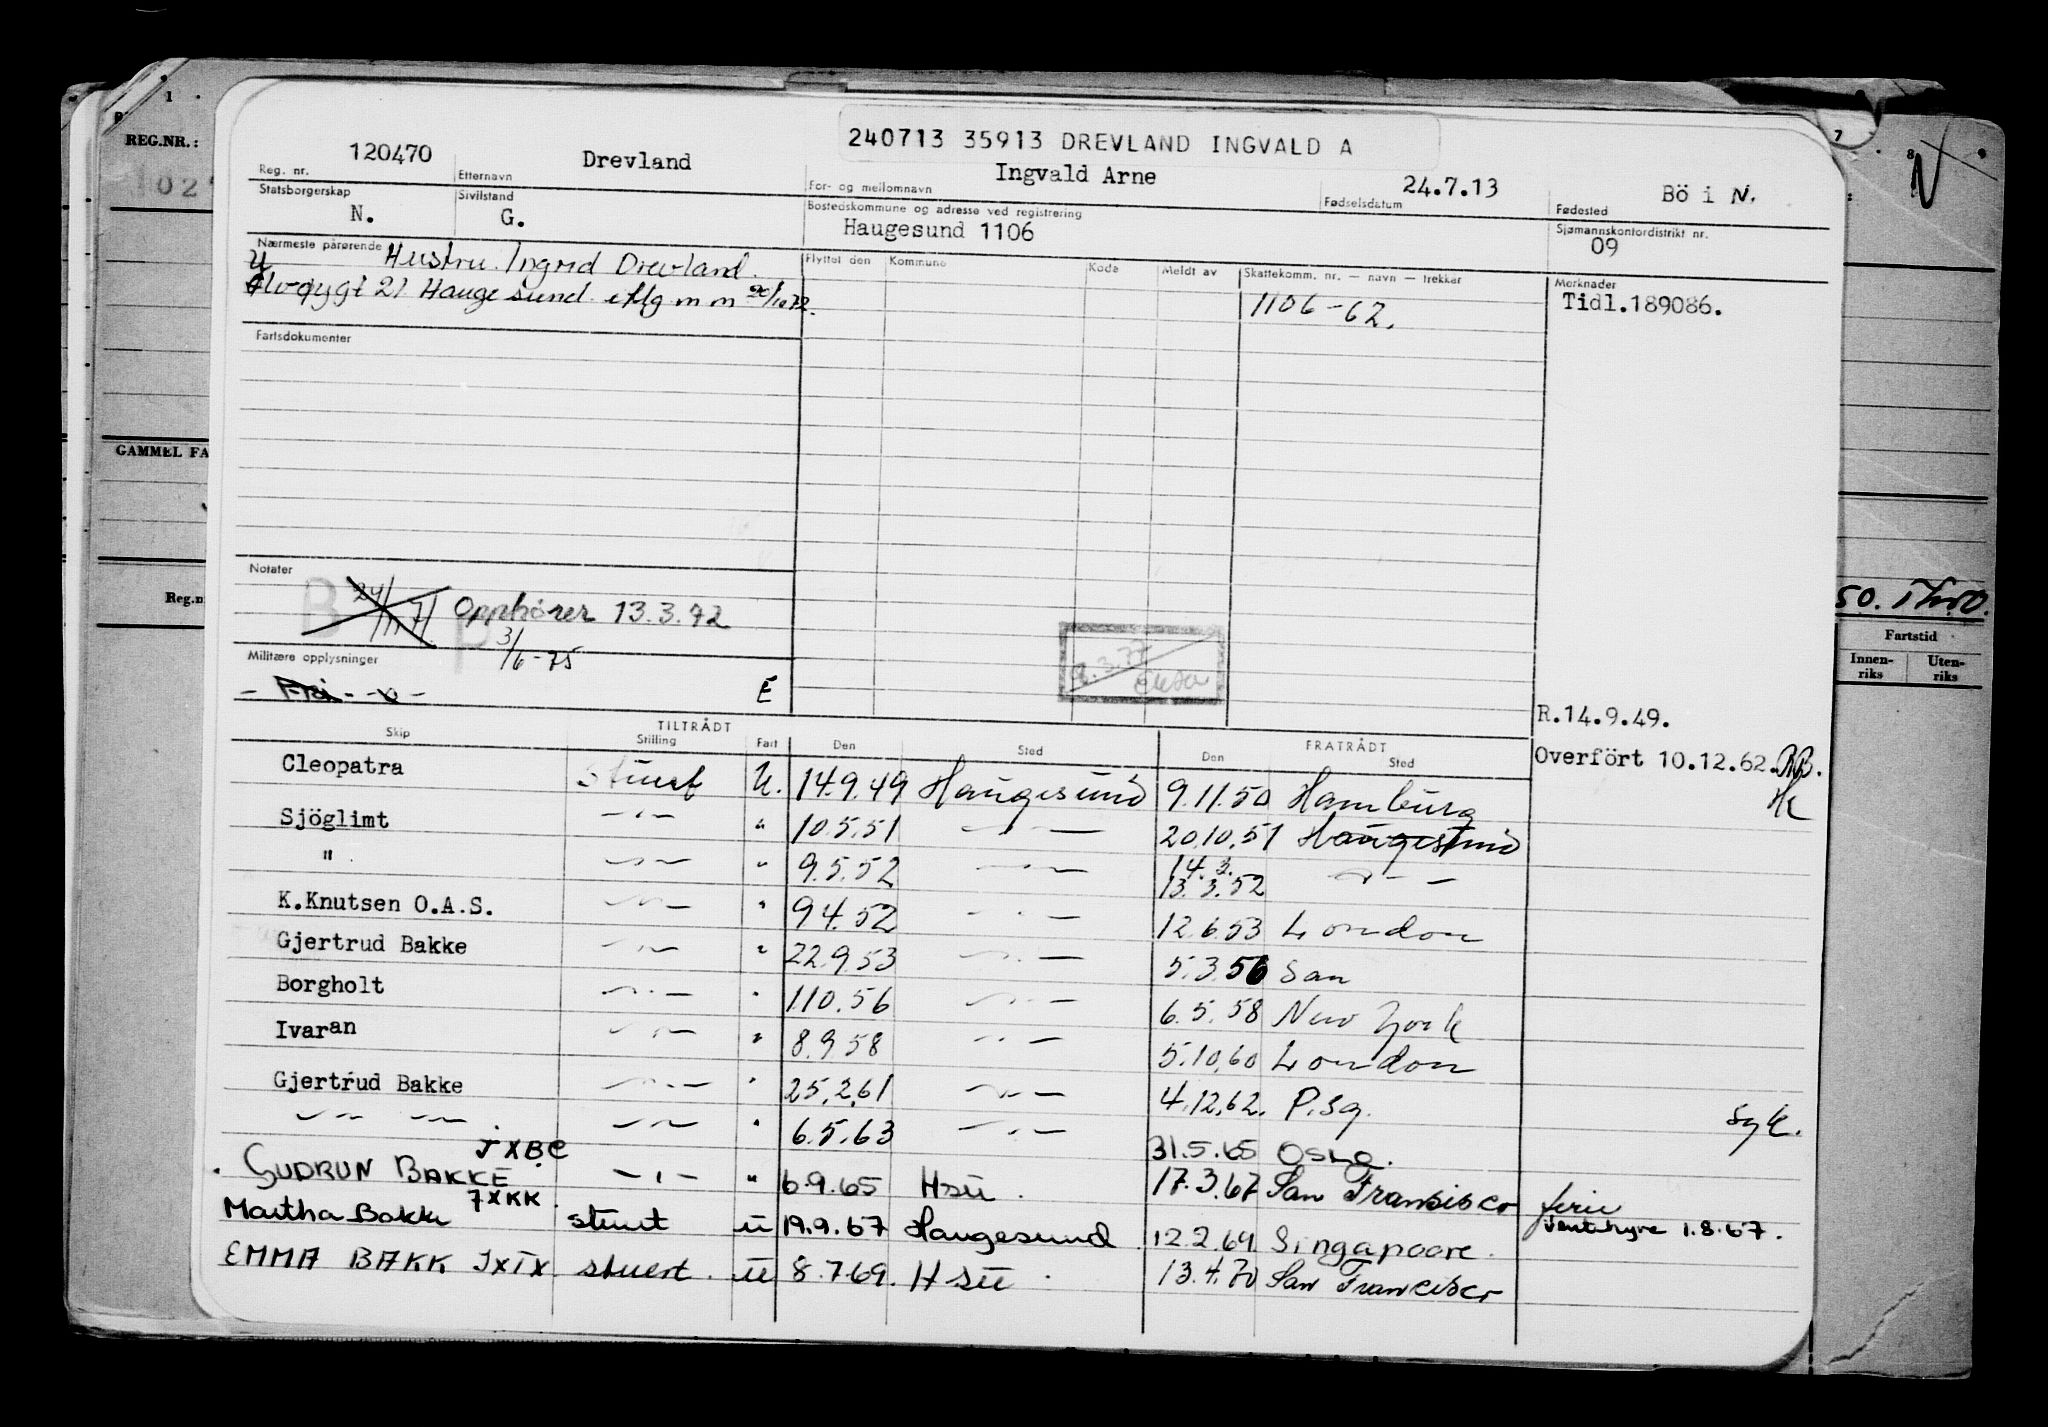 1 7 8 9
REG.NR.:
240713 35913 DREVLAND INGVALD A
120470 Drevland Ingvald Arne 24.7.13 Bö i N.
Reg. nr. Etternavn For- og mellomnavn Fødselsdatum Fødested
Statsborgerskap Sivilstand Bostedskommune og adresse ved registrering Sjømannskontordistrikt nr.
N. G. Haugesund 1106 09
Nærmeste pårørende Hustru. Ingrid Drevland. Flyttet den Kommune Kode Meldt av Skattekomm. nr. — navn — trekker Merknader
21 Haugesund 1106-62. Tidl.189086.
Fartsdokumenter
GAMMEL FA
Notater
Opphörer 13.3.72
3/6-75
Reg.n
50.
Fartstid
Innen-riks Uten-riks
Militære opplysninger
- Fri - E
R.14.9.49.
TILTRÅDT FRATRÅDT
Skip Stilling Fart Den Sted Den Sted
Overfört 10.12.62. RB.
Cleopatra Stuert U. 14.9.49 Haugesund 9.11.50 Hamburg HK
Sjöglimt -"- " 10.5.51 -"- 20.10.51 Haugesund
" -"- " 9.5.52 -"- 14.3. 13.3.52 -"-
K.Knutsen O.A.S. -"- " 9.4.52 -"- 12.6.53 London
Gjertrud Bakke -"- " 22.9.53 -"- 5.3.56 San
Borgholt -"- " 1.10.56 -"- 6.5.58 New York
Ivaran -"- " 8.9.58 -"- 5.10.60 London
Gjertrud Bakke -"- " 25.2.61 -"- 4.12.62. P.sg. Syk.
-"- -"- . -"- " 6.5.63 -"- 31.5.65 OSLO.
GUDRUN BAKKE JXBC -"- " 6.9.65 Hsu. 17.3.67 San Fransisco ferie
Martha Bakke JXKK. stuert u 19.9.67 Haugesund 12.2.69 Singapoore. Ventehyre 1.8.67.
EMMA BAKK JXIX. stuert. u 8.7.69. Hsu. 13.4.70 San Francisco